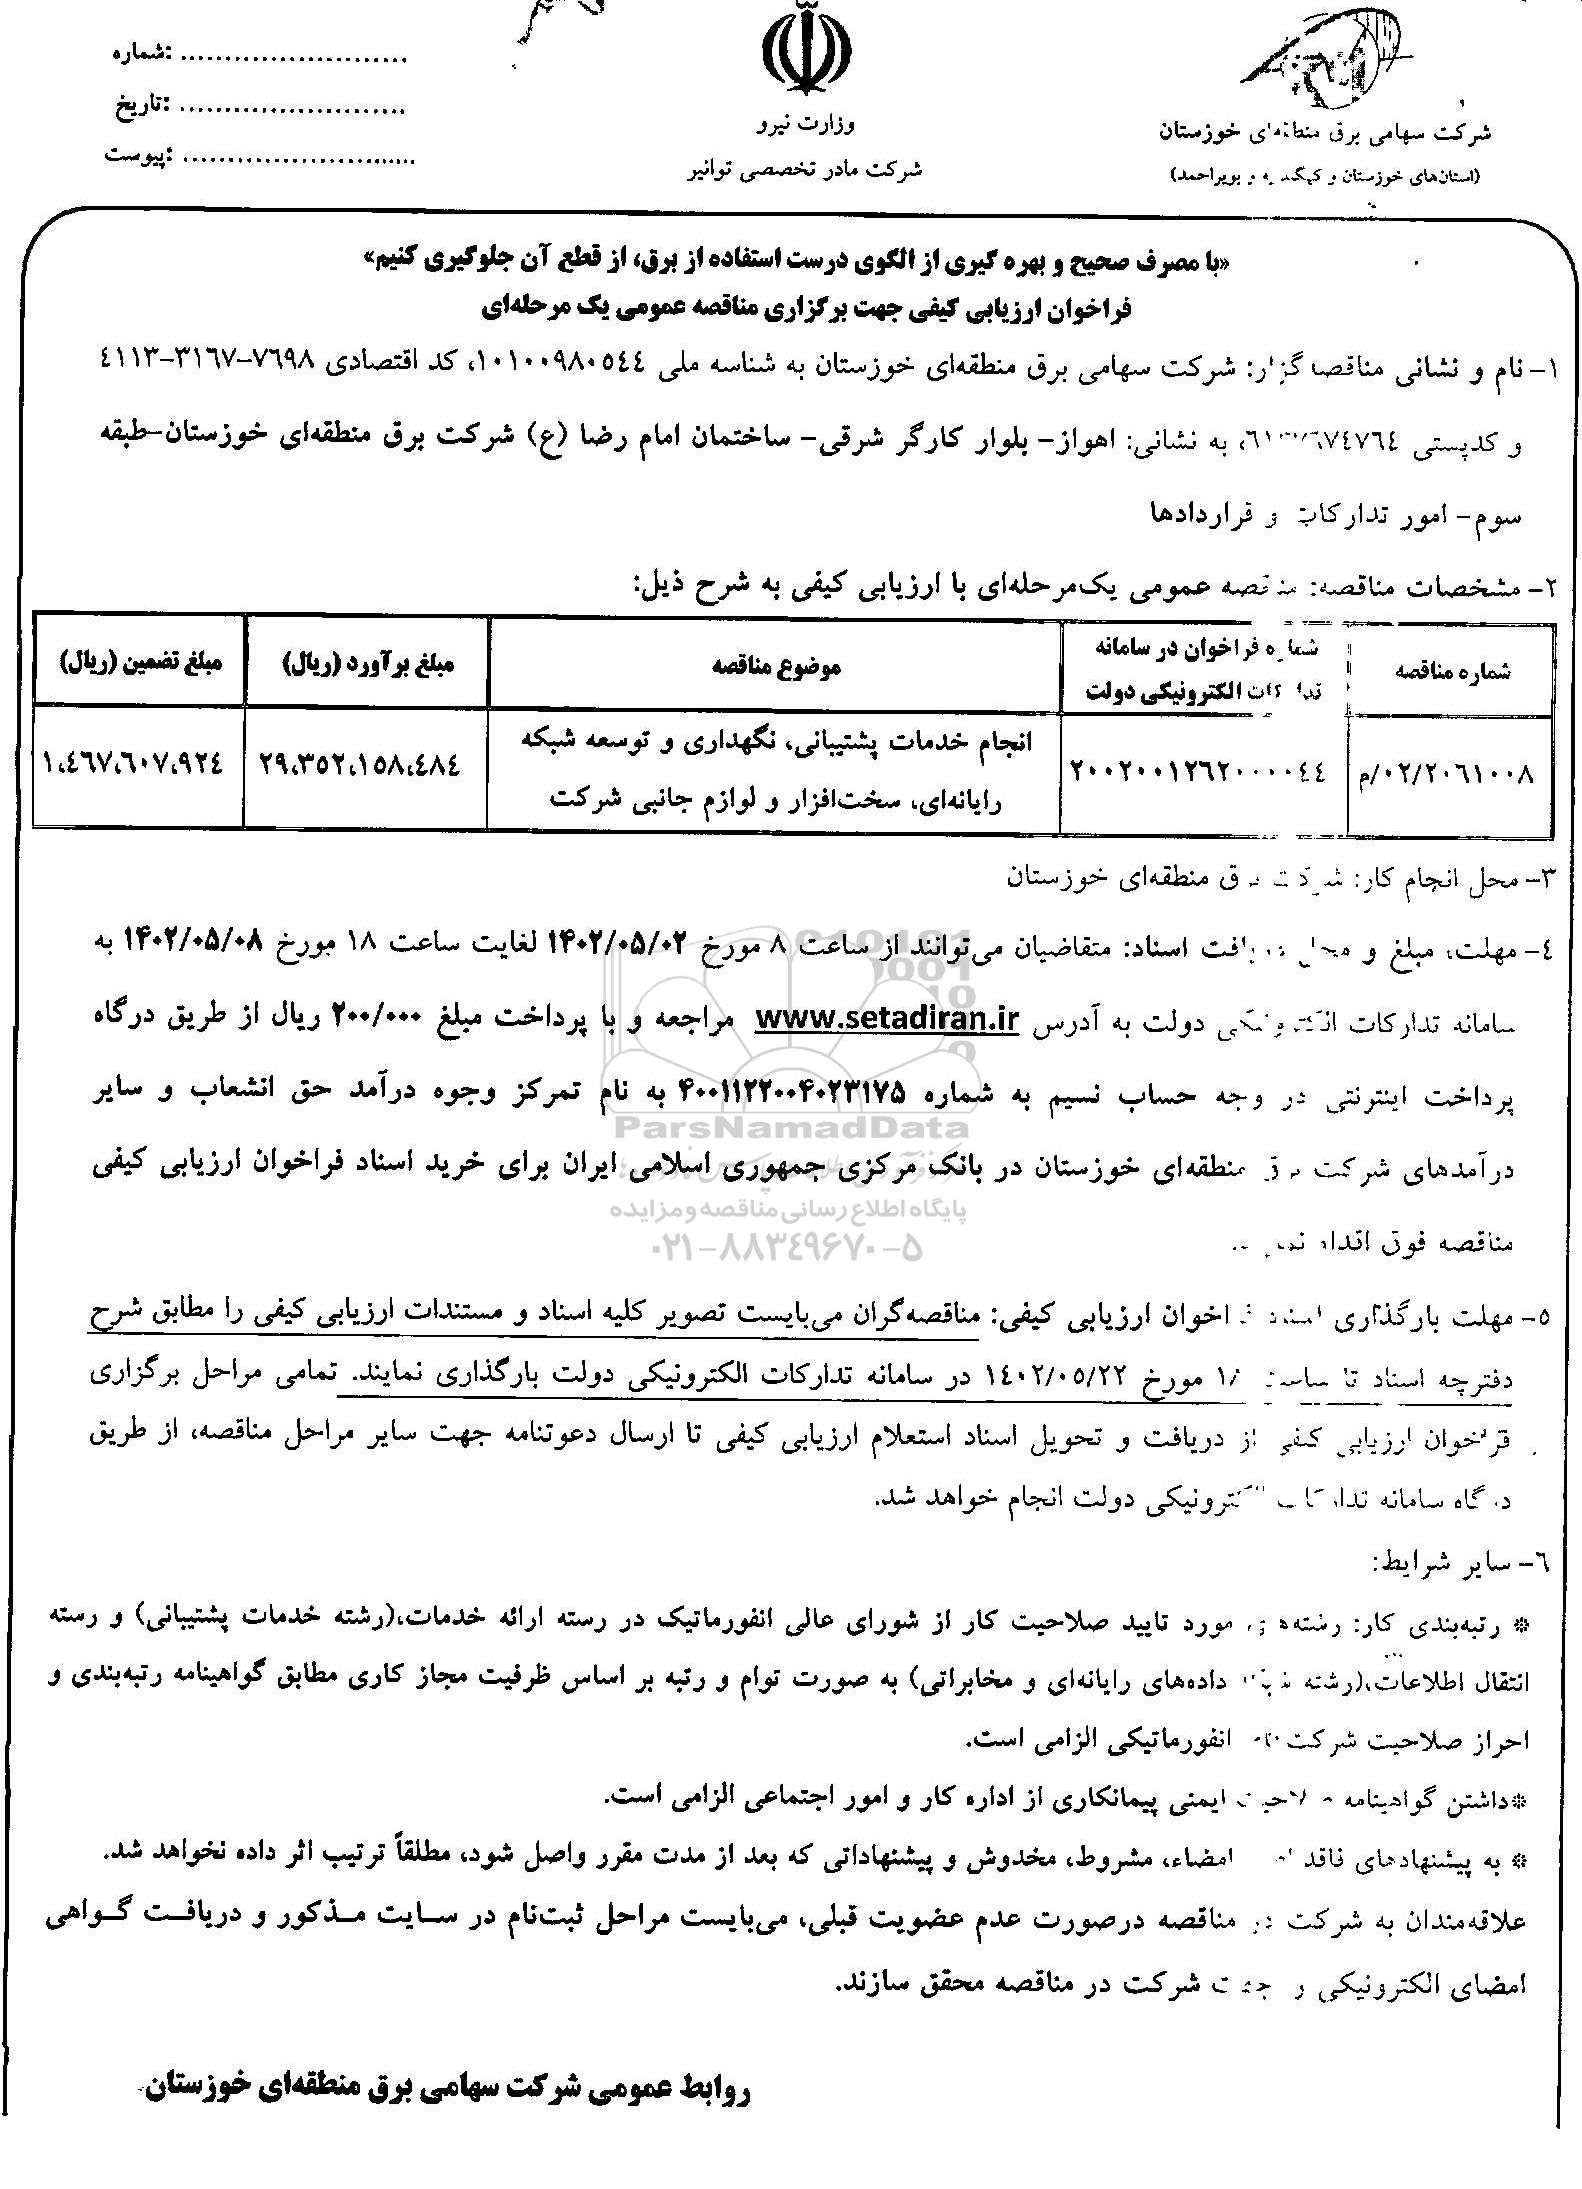 شماره: ..........................
تاریخ: ..........................
پیوست: ..........................
وزارت نیرو
شرکت مادر تخصصی توانیر
شرکت سهامی برق منطقه‌ای خوزستان
(استان‌های خوزستان و کهگیلویه و بویراحمد)
«با مصرف صحیح و بهره گیری از الگوی درست استفاده از برق، از قطع آن جلوگیری کنیم»
فراخوان ارزیابی کیفی جهت برگزاری مناقصه عمومی یک مرحله‌ای
۱- نام و نشانی مناقصه‌گزار: شرکت سهامی برق منطقه‌ای خوزستان به شناسه ملی ۱۰۱۰۰۹۸۰۵٤٤، کد اقتصادی ۷٦۹۸-۳۱٦۷-٤۱۱۳
و کدپستی به نشانی: اهواز- بلوار کارگر شرقی- ساختمان امام رضا (ع) شرکت برق منطقه‌ای خوزستان-طبقه
سوم- امور تدارکات و قراردادها
۲- مشخصات مناقصه: مناقصه عمومی یک‌مرحله‌ای با ارزیابی کیفی به شرح ذیل:
شماره مناقصه | شماره فراخوان در سامانه تدارکات الکترونیکی دولت | موضوع مناقصه | مبلغ برآورد (ریال) | مبلغ تضمین (ریال)
۰۲/۲۰٦۱۰۰۸/م | ۲۰۰۲۰۰۱۲٦۲۰۰۰۰٤٤ | انجام خدمات پشتیبانی، نگهداری و توسعه شبکه رایانه‌ای، سخت‌افزار و لوازم جانبی شرکت | ۲۹،۳۵۲،۱۵۸،٤۸٤ | ۱،٤٦۷،٦۰۷،۹۲٤
۳- محل انجام کار: شرکت برق منطقه‌ای خوزستان
٤- مهلت، مبلغ و محل دریافت اسناد: متقاضیان می‌توانند از ساعت ۸ مورخ ۱۴۰۲/۰۵/۰۲ لغایت ساعت ۱۸ مورخ ۱۴۰۲/۰۵/۰۸ به
سامانه تدارکات الکترونیکی دولت به آدرس www.setadiran.ir مراجعه و با پرداخت مبلغ ۲۰۰/۰۰۰ ریال از طریق درگاه
پرداخت اینترنتی در وجه حساب نسیم به شماره ۴۰۰۱۱۲۲۰۰۴۰۲۳۱۷۵ به نام تمرکز وجوه درآمد حق انشعاب و سایر
درآمدهای شرکت برق منطقه‌ای خوزستان در بانک مرکزی جمهوری اسلامی ایران برای خرید اسناد فراخوان ارزیابی کیفی
مناقصه فوق اقدام نمایند.
ParsNamadData
پایگاه اطلاع رسانی مناقصه و مزایده
۰۲۱-۸۸۳٤۹٦۷۰-۵
۵- مهلت بارگذاری اسناد فراخوان ارزیابی کیفی: مناقصه‌گران می‌بایست تصویر کلیه اسناد و مستندات ارزیابی کیفی را مطابق شرح
دفترچه اسناد تا ساعت ۱۸ مورخ ۱٤۰۲/۰۵/۲۲ در سامانه تدارکات الکترونیکی دولت بارگذاری نمایند. تمامی مراحل برگزاری
فراخوان ارزیابی کیفی از دریافت و تحویل اسناد استعلام ارزیابی کیفی تا ارسال دعوتنامه جهت سایر مراحل مناقصه، از طریق
درگاه سامانه تدارکات الکترونیکی دولت انجام خواهد شد.
٦- سایر شرایط:
* رتبه‌بندی کار: رشته‌های مورد تایید صلاحیت کار از شورای عالی انفورماتیک در رسته ارائه خدمات،(رشته خدمات پشتیبانی) و رسته
انتقال اطلاعات،(رشته شبکه داده‌های رایانه‌ای و مخابراتی) به صورت توام و رتبه بر اساس ظرفیت مجاز کاری مطابق گواهینامه رتبه‌بندی و
احراز صلاحیت شرکت‌های انفورماتیکی الزامی است.
*داشتن گواهینامه صلاحیت ایمنی پیمانکاری از اداره کار و امور اجتماعی الزامی است.
* به پیشنهادهای فاقد امضاء، مشروط، مخدوش و پیشنهاداتی که بعد از مدت مقرر واصل شود، مطلقاً ترتیب اثر داده نخواهد شد.
علاقه‌مندان به شرکت در مناقصه درصورت عدم عضویت قبلی، می‌بایست مراحل ثبت‌نام در سایت مذکور و دریافت گواهی
امضای الکترونیکی را جهت شرکت در مناقصه محقق سازند.
روابط عمومی شرکت سهامی برق منطقه‌ای خوزستان